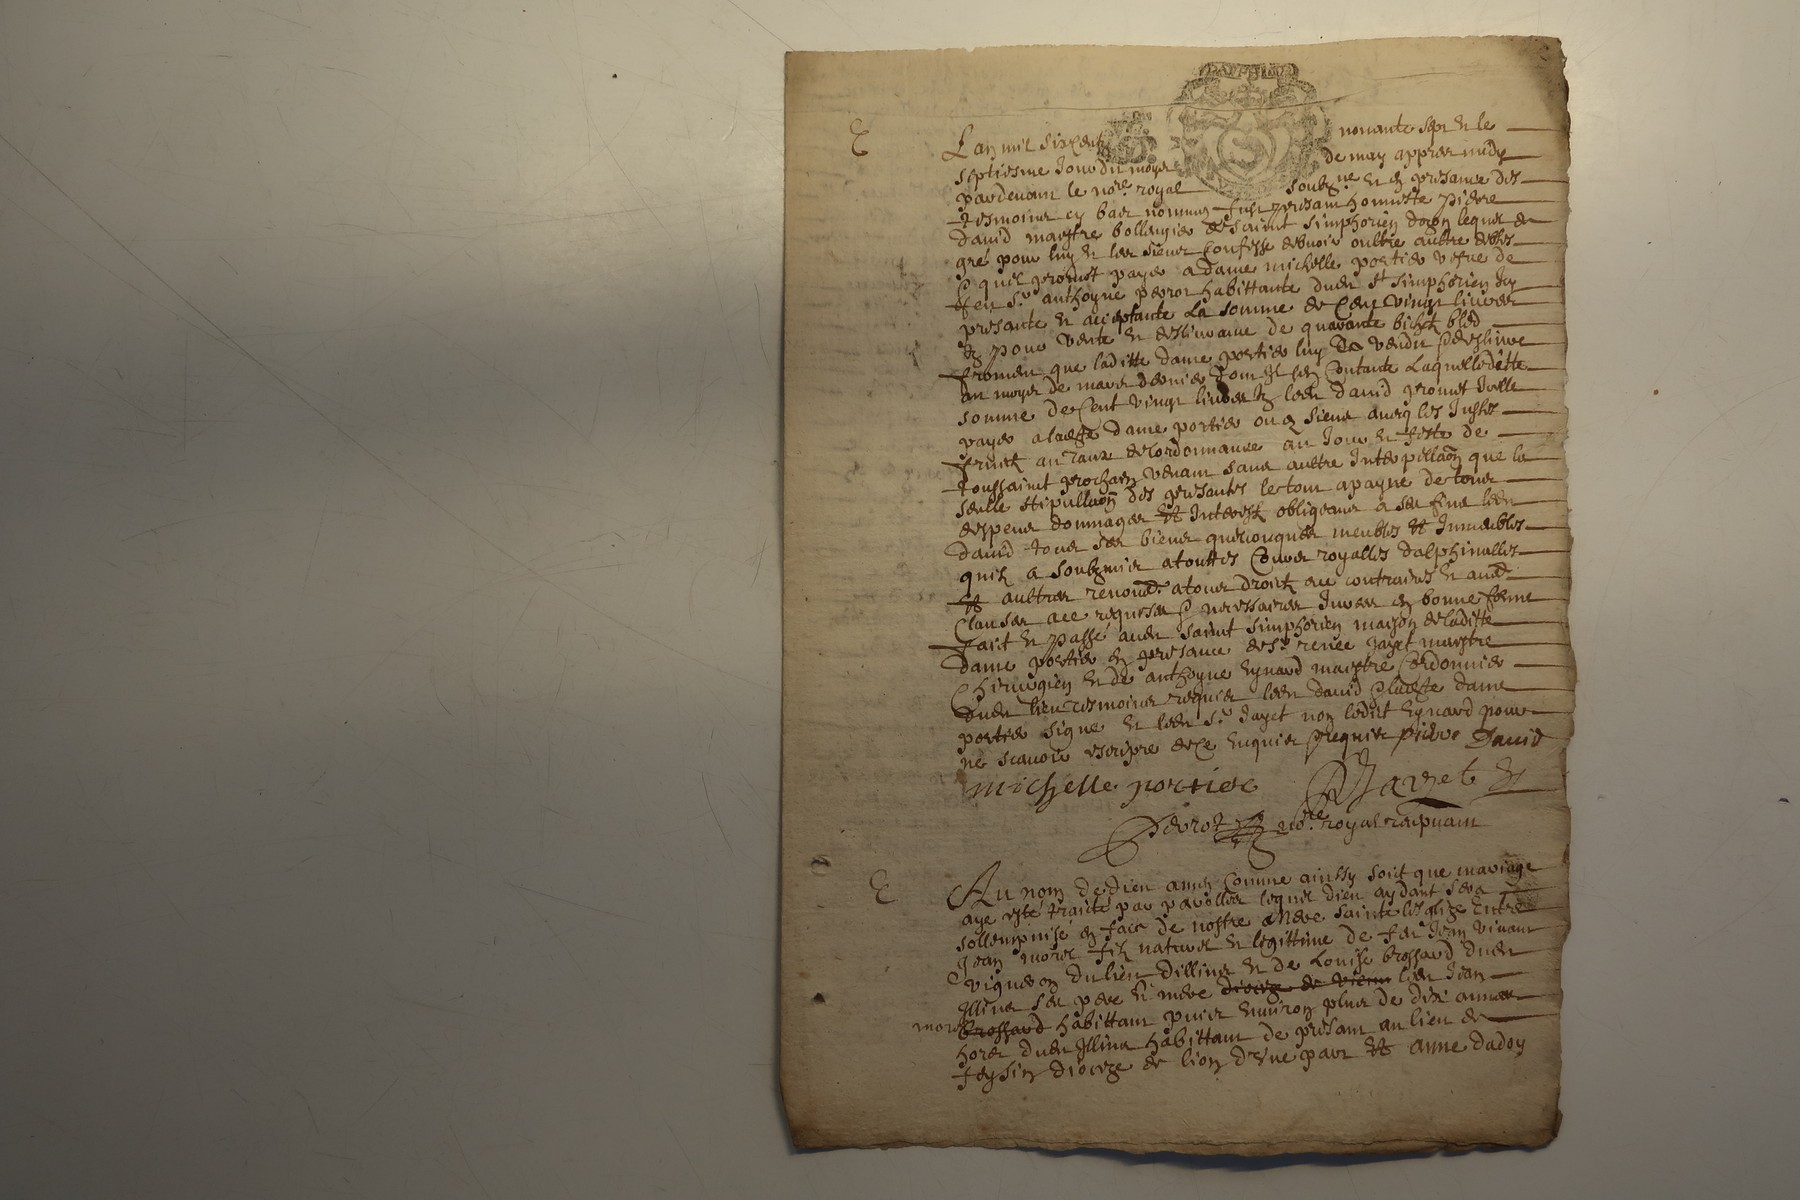 DAUPHINE
Lan mil six cents nonante sept & le
septiesme Jour du moys de may appres midy
pardevant le no.re royal soubz.ne & en presance des
tesmoins cy bas nommes fust presant honneste pierre
david maistre bollangier de saint simphorien dozon lequel de
gré pour luy & les siens Confesse debvoir oultre aultre debte
quil promet payer a dame michelle portier vefve de
feu S.r anthoyne perrot habittante dudt St simphorien Icy
presante & acceptante La somme de Cent vingt livres
pour vente & deslivrance de quarante bichetz bled
froment que laditte dame portier luy a vendu deslivré
au moys de mars dernier dont Il sen Contante Laquelle ditte
somme de Cent vingt livres ledt david promet Icelle
payer a ladte dame portier ou siens avecq les Justes
fruictz au Taux de lordonnance au Jour & feste de
toussaint prochain venant sans aultre Interpellaon que la
seulle stipullaon des presantes le tout a payne de tous
despens dommages & Interestz obligeant a ses fins ledt
david tous ses biens quelconques meubles & Immeubles
quil a soubzmis a touttes Cours royalles dalphinalles
& aultres renond. a tous droictz au contraires & aud.
Clauses ace requises necessaires Jures en bonne forme
faict & passé audt saint simphorien maison de laditte
dame portier en presance de S.r renee Jayet maistre
Chirurgien & de anthoyne Eynard maistre Cordonnier
dudt lieu tesmoins requis ledt david & ladte dame
portier signe & ledt S.r Jayet non ledit Eynard pour
ne scavoir escripre de ce Enquis & requis pierre David
michelle portier Jayet
Perrot no.re royal recepvant
Au nom de dieu amen Comme ainssy soit que mariage
aye esté traicté par parolles lequel dieu aydant sera
sollempnisé en face de nostre mere sainte lesglize Entre
Jean morel filz naturel & legittime de feu Jean vivant
vigneron du lieu dillins & de Louise brossard dudt
Illins ses pere & mere dioceze de vienne ledt Jean
morel brossard habittant puis Environ plus de dix annees
hors dudt Illins habittant de presant au lieu de
feysin dioceze de lion d'une part & anne dadoy